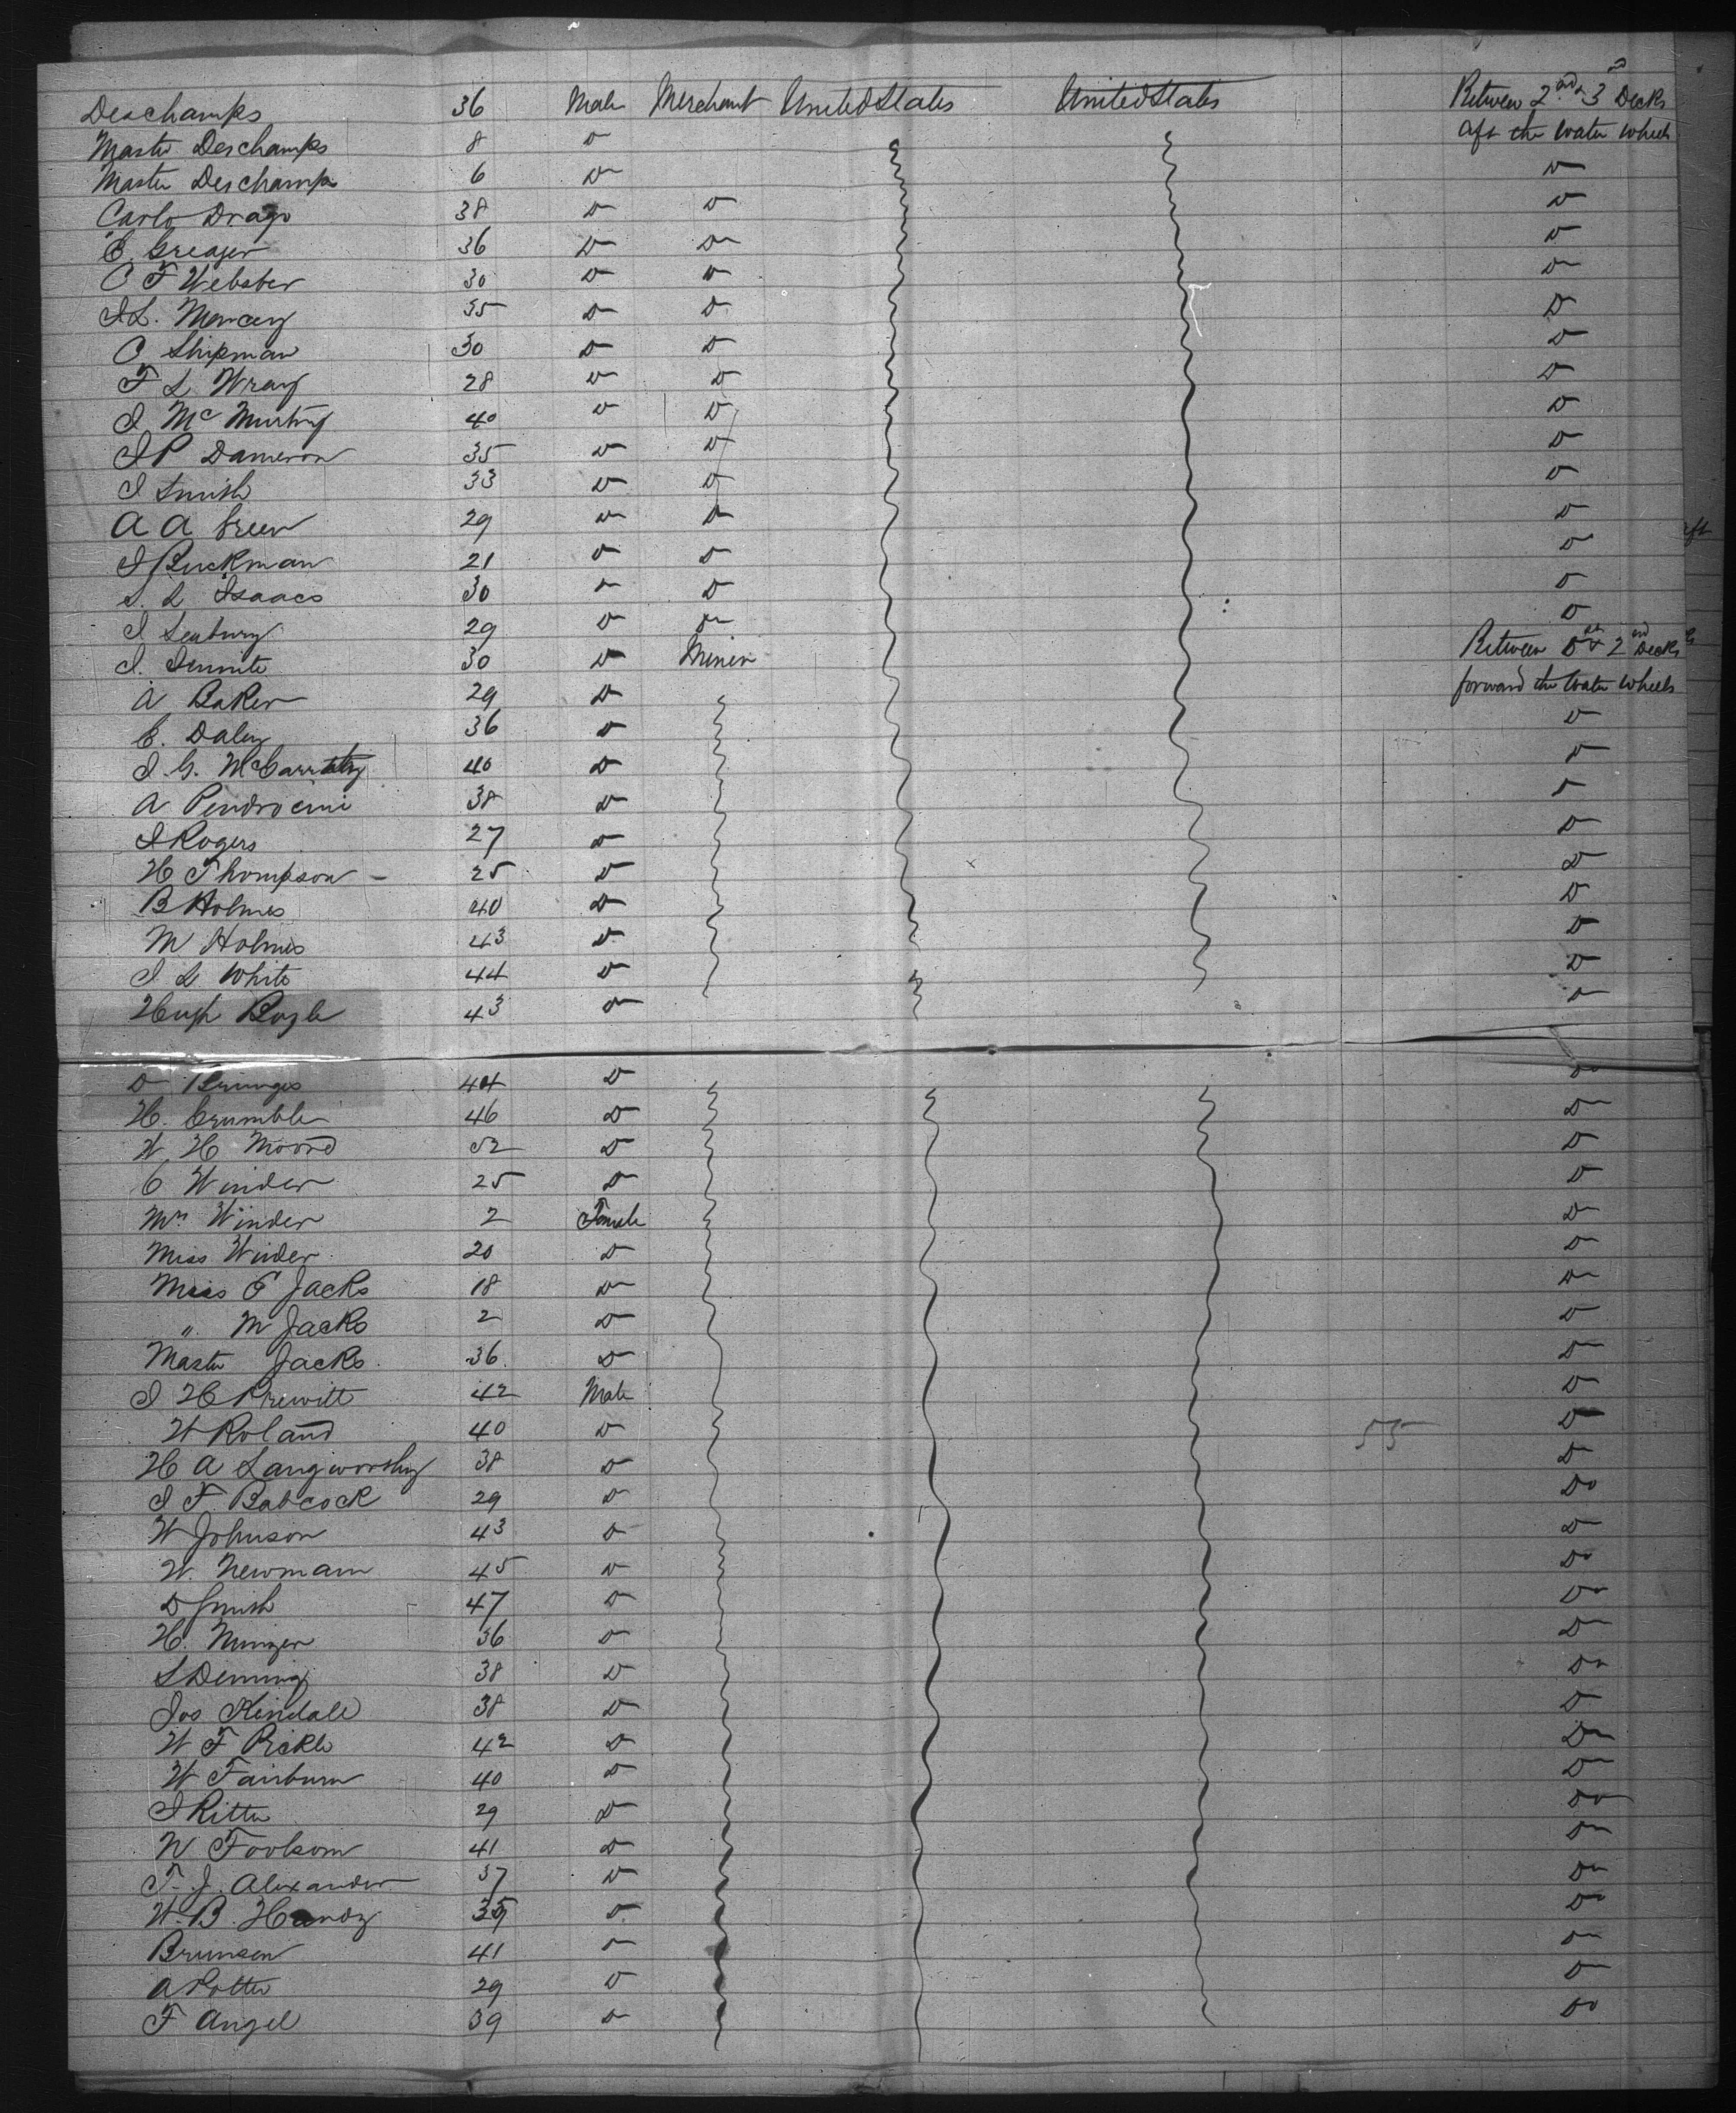 Deschamps 36 Male Merchant United States United States Between 2nd & 3 Decks
Master Deschamps 8 Do aft the Water Wheels
Master Deschamps 6 Do Do
Carlo Drago 38 Do Do Do
E. Greager 36 Do Do Do
C F Webster 30 Do Do Do
I L. Mercey 35 Do Do Do
C Shipman 30 Do Do Do
F L Wray 28 Do Do Do
I Mc Murtry 40 Do Do Do
I P Dameron 35 Do Do Do
I Smith 33 Do Do Do
A A Green 29 Do Do Do
I Buckman 21 Do Do Do
S. L Isaacs 30 Do Do Do
I Seabury 29 Do Do Do
I. 30 Do Miner Between & 2nd Decks
A Baker 29 Do forward the Water Wheels
E. Daley 36 Do Do
I. G. McGarrity 40 Do Do
A Pendrocini 38 Do Do
I Rogers 27 Do Do
H Thompson 25 Do Do
B Holmes 40 Do Do
M Holmes 43 Do Do
I L White 44 Do Do
Hugh Bogle 43 Do Do
D 44 Do Do
H. Crumble 46 Do Do
W H Moord 52 Do Do
C Winder 25 Do Do
Mrs Winder 2 Female Do
Miss Winder 20 Do Do
Miss E Jacks 18 Do Do
" M Jacks 2 Do Do
Master Jacks 36 Do Do
I H Prewitt 42 Male Do
W Roland 40 Do 55 Do
H A Langworthy 38 Do Do
I F. Babcock 29 Do Do
W Johnson 43 Do Do
W. Newmam 45 Do Do
D Smith 47 Do Do
H. Minzer 36 Do Do
S Deming 38 Do Do
Jos Kindall 38 Do Do
W F Pickle 42 Do Do
W Fairburn 40 Do Do
I Ritter 29 Do Do
N Foolsom 41 Do Do
F. J. Alexander 37 Do Do
W. B. Handy 39 Do Do
Brunsen 41 Do Do
A Potter 29 Do Do
F Angel 39 Do Do